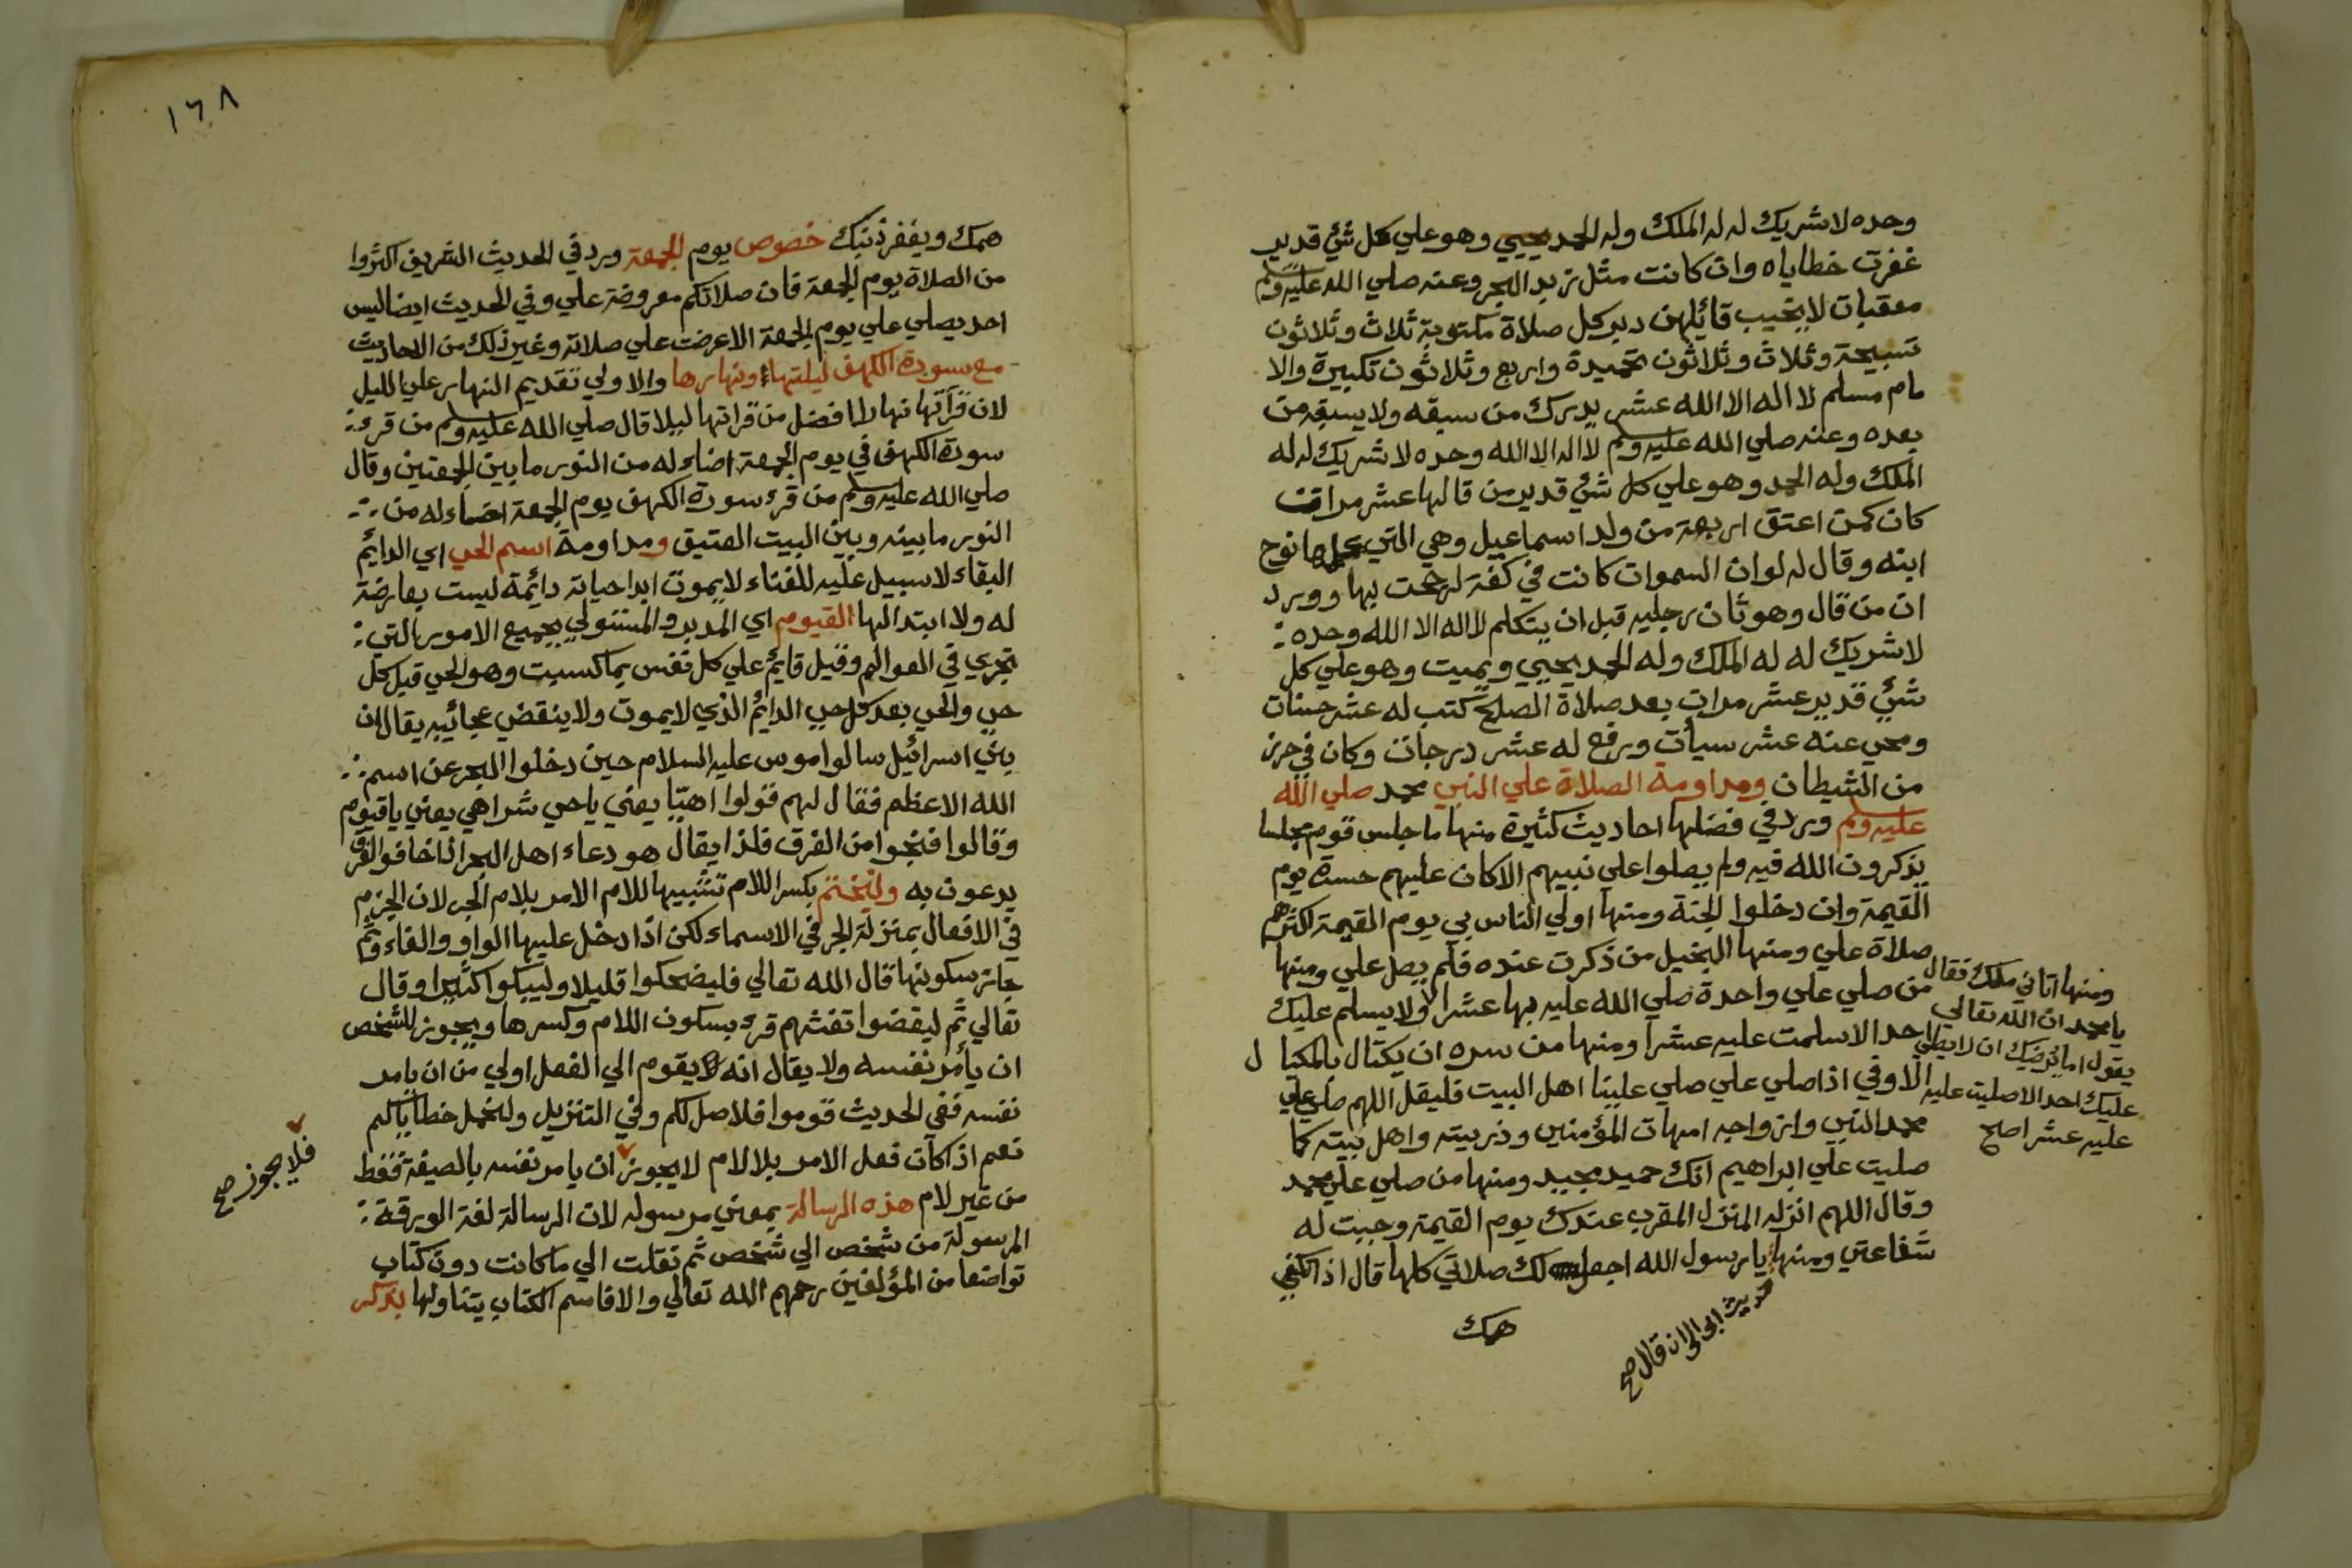 وحده لا شريك له له الملك وله الحمد يحيي وهو علي كل شئ قدير
غفرت خطاياه وان كانت مثل زبد البحر وعنه صلي الله عليه وسلم
معقبات لا يخيب قائلهن دبر كل صلاة مكتوبة ثلاث وثلاثون
تسبيحة وثلاث وثلاثون تحميدة واربع وثلاثون تكبيرة والا
مام مسلم لا اله الا الله عشر يدرك من سبقه ولا يسبقه من
بعده وعنه صلي الله عليه وسلم لا اله الا الله وحده لا شريك له له
الملك وله الحمد وهو علي كل شئ قدير من قالها عشر مرات
كان كمن اعتق اربعة من ولد اسماعيل وهي التي علمها نوح
ابنه وقال له لو ان السموات كانت في كفة لرجحت بها وورد
ان من قال وهو ثان رجليه قبل ان يتكلم لا اله الا الله وحده
لا شريك له له الملك وله الحمد يحيي ويميت وهو علي كل
شئ قدير عشر مرات بعد صلاة الصبح كتب له عشر حسنات
ومحي عنه عشر سيأت ورفع له عشر درجات وكان في حرز
من الشيطان ومداومة الصلاة علي النبي محمد صلي الله
عليه وسلم ورد في فضلها احاديث كثيرة منها ما جلس قوم مجلسا
يذكرون الله فيه ولم يصلوا علي نبيهم الا كان عليهم حسرة يوم
القيمة وان دخلوا الجنة ومنها اولي الناس بي يوم القيمة اكثرهم
صلاة علي ومنها البخيل من ذكرت عنده فلم يصل علي ومنها
من صلي علي واحدة صلي الله عليه بها عشرا ولا يسلم عليك
احد الا سلمت عليه عشرا ومنها من سره ان يكتال بالمكيال
الاوفي اذا صلي علي صلي علينا اهل البيت فليقل اللهم صل علي
محمد النبي وازواجه امهات المؤمنين وذريته واهل بيته كما
صليت علي ابراهيم انك حميد مجيد ومنها من صلي علي محمد
وقال اللهم انزله المنزل المقرب عندك يوم القيمة وجبت له
شفاعتي ومنها يا رسول الله اجعل لك صلاتي كلها قال اذا تكفي
همك
حديث ابي الى ان قال صح
ومنها اتاني ملك فقال
يا محمد ان الله تعالي
يقول اما يرضيك ان لا يصلي
عليك احد الا صليت عليه
عليه عشرا صح
١٦٨
همك ويغفر ذنبك خصوص يوم الجمعة ورد في الحديث الشريف اكثروا
من الصلاة يوم الجمعة فان صلاتكم معروضة علي وفي الحديث ايضا ليس
احد يصلي علي يوم الجمعة الا عرضت علي صلاته وغير ذلك من الاحاديث
مع سورة الكهف ليلتها ونهارها والاولي تقديم النهار علي الليل
لان قرأتها نهارا افضل من قراتها ليلا قال صلي الله عليه وسلم من قرء
سورة الكهف في يوم الجمعة اضاء له من النور ما بين الجمعتين وقال
صلي الله عليه وسلم من قرء سورة الكهف يوم الجمعة اضاء له من
النور ما بينه وبين البيت العتيق ومداومة اسم الحي اي الدايم
البقاء لا سبيل عليه للفناء لا يموت ابدا حياته دائمة ليست بعارضة
له ولا ابتدا لها القيوم اي المدبر والمتولي بجميع الامور التي
تجري في العوالم وقيل قايم علي كل نفس بما كسبت وهو الحي قبل كل
حي والحي بعد كل حي الدايم الذي لا يموت ولا ينقضي عجائبه يقال ان
بني اسرائيل سالوا موسي عليه السلام حين دخلوا البحر عن اسم
الله الاعظم فقال لهم قولوا اهيا يعني يا حي شراهي يعني يا قيوم
وقالوا فنجوا من الغرق فلذا يقال هو دعاء اهل البحر اذا خافوا الغرق
يدعون به ولنختم بكسر اللام تشبيها للام الامر بلام الجر لان الجزم
في الافعال بمنزلة الجر في الاسماء لكن اذا دخل عليها الواو والفاء وثم
جاز سكونها قال الله تعالي فليضحكوا قليلا وليبكوا كثيرا وقال
تعالي ثم ليقضوا تفثهم قرء بسكون اللام وكسرها ويجوز للشخص
ان يأمر نفسه ولا يقال انه لا يقوم الي الفعل اولي من ان يامر
نفسه ففي الحديث قوموا فلاصل لكم وفي التنزيل ولنحمل خطاياكم
نعم اذا كان فعل الامر بلا لام لا يجوز ان يامر نفسه بالصيغة فقط
من غير لام هذه الرسالة بمعني مرسوله لان الرسالة لغة الورقة
المرسولة من شخص الي شخص ثم نقلت الي ما كانت دون كتاب
تواضعا من المؤلفين رحمهم الله تعالي والا فاسم الكتاب يتناولها بذكر
فلا يجوز صح